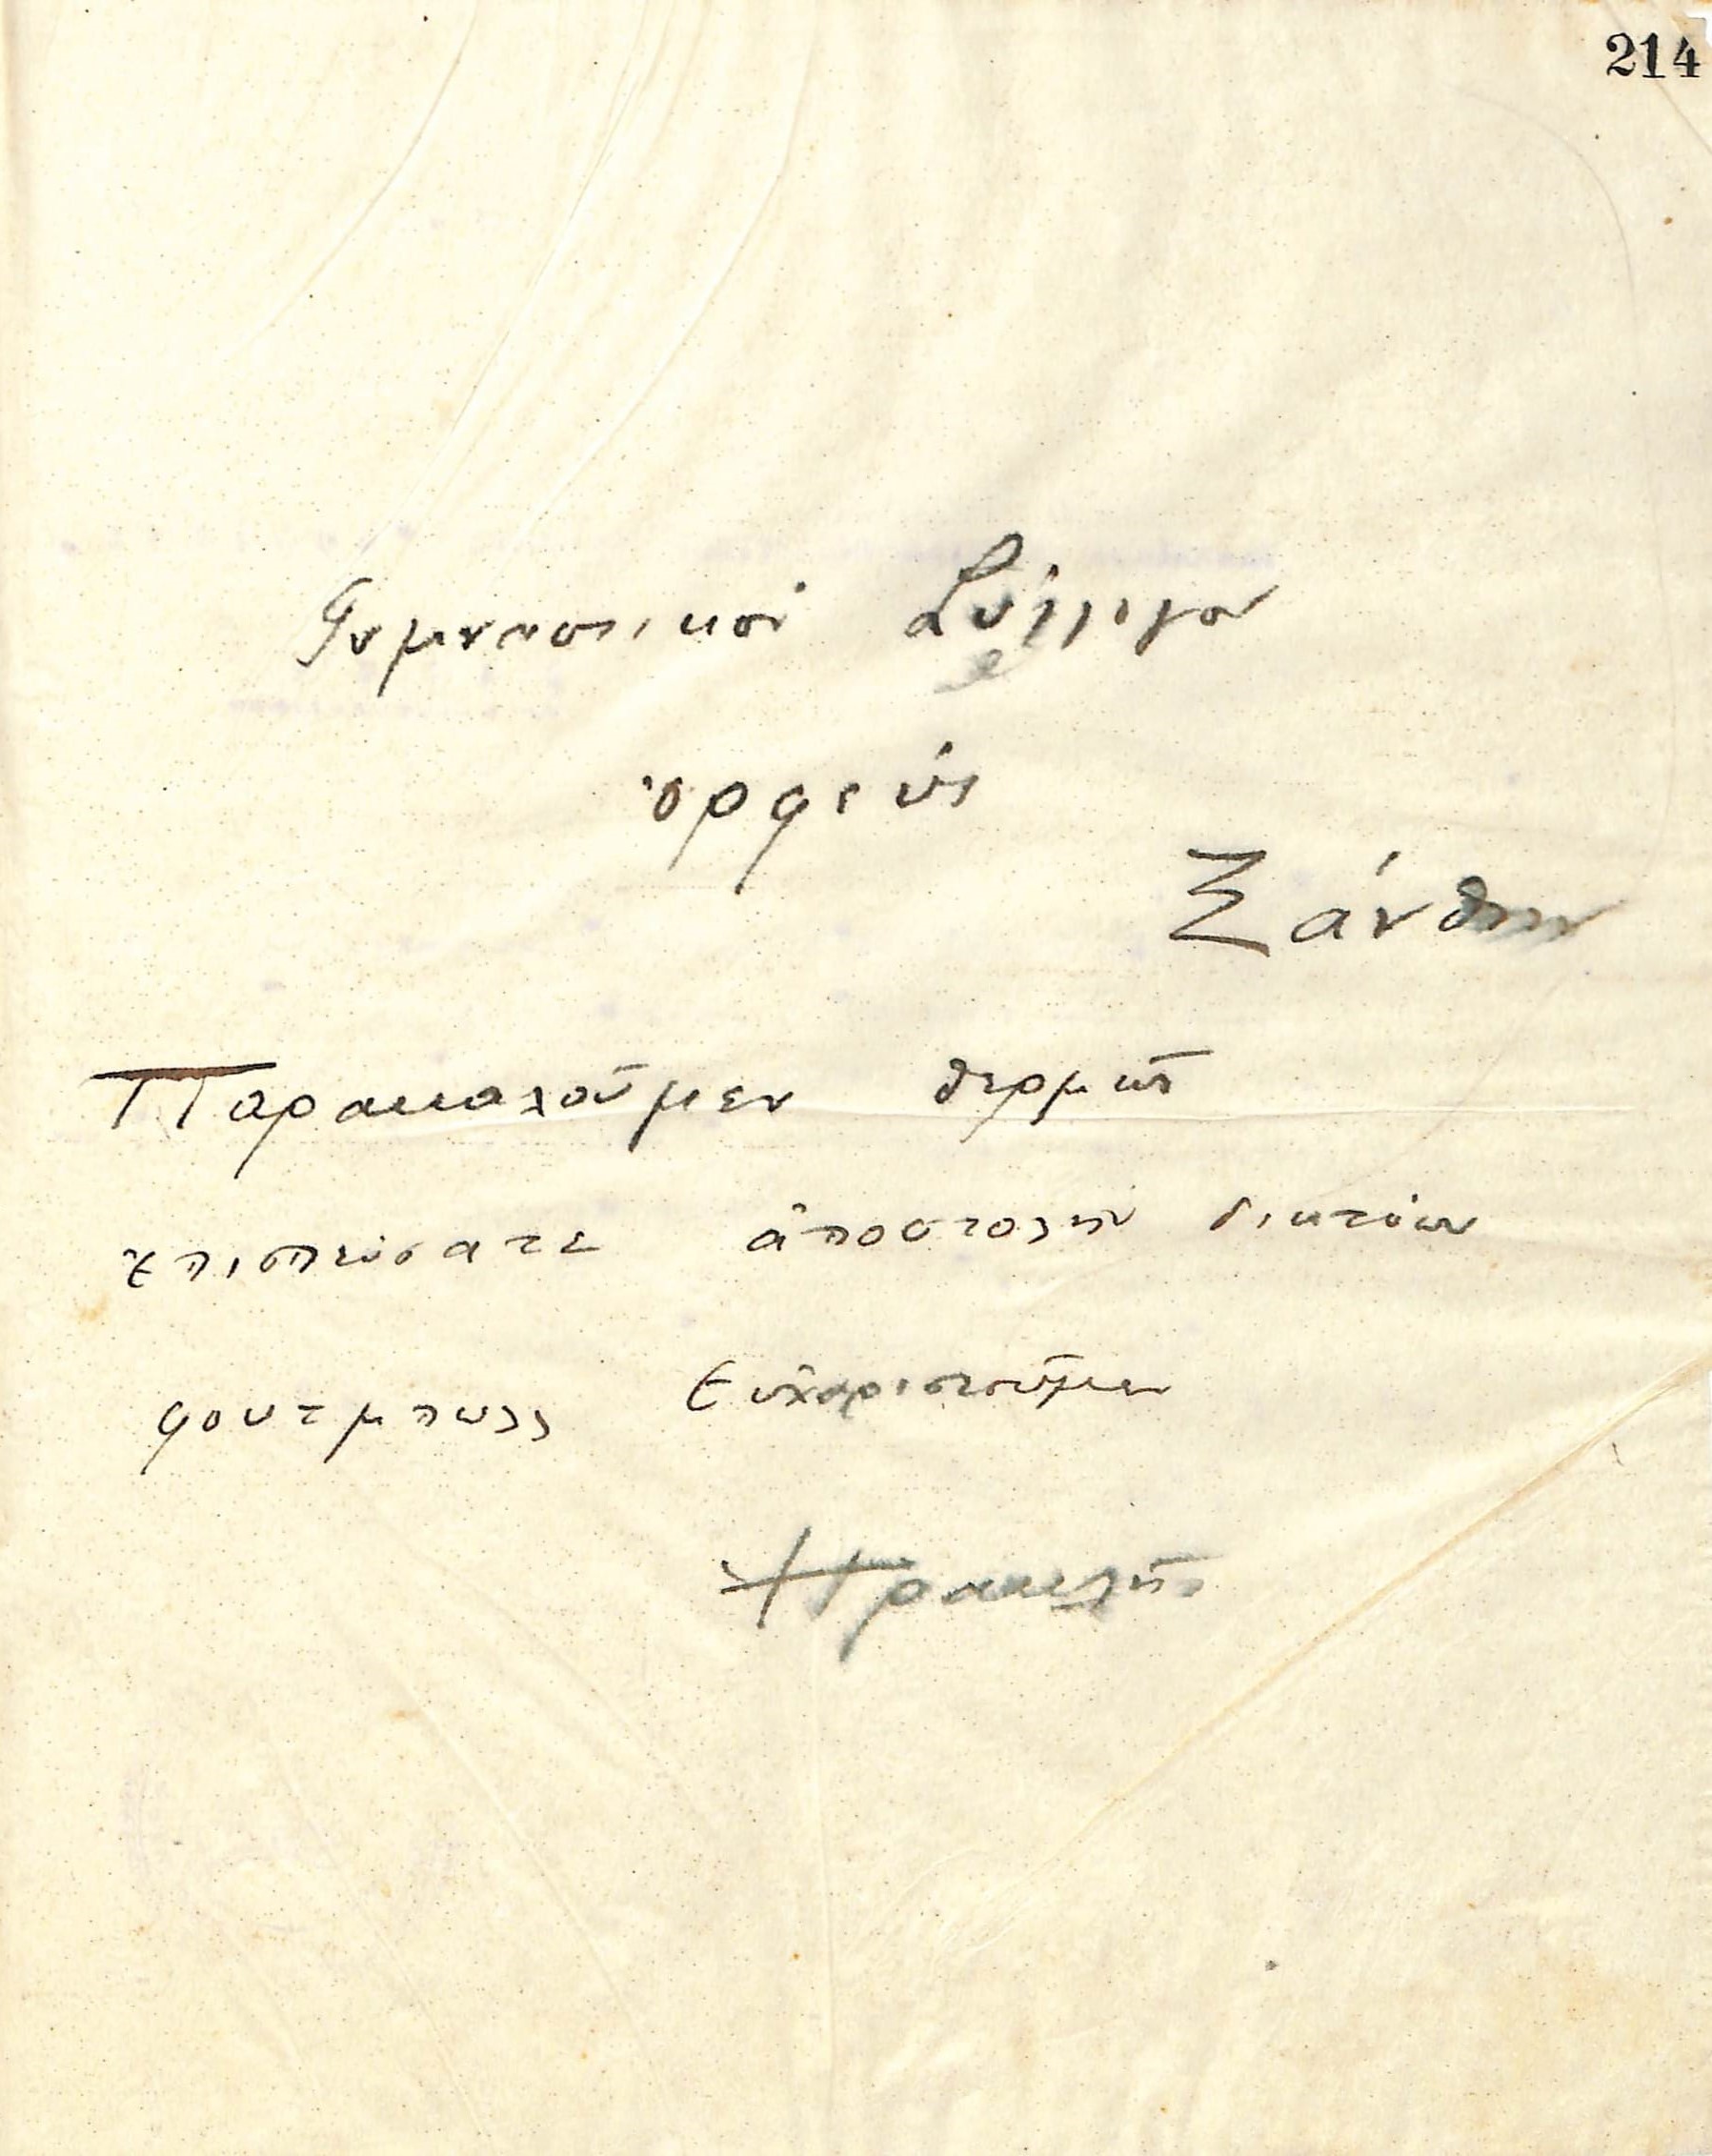 214
Γυμναστικόν Σύλλογον
Ὀρφεύς
Ξάνθην
Παρακαλοῦμεν θερμῶς
ἐπισπεύσατε ἀποστολήν δικτύων
φουτμπώλλ Εὐχαριστοῦμεν
Ἡρακλῆς